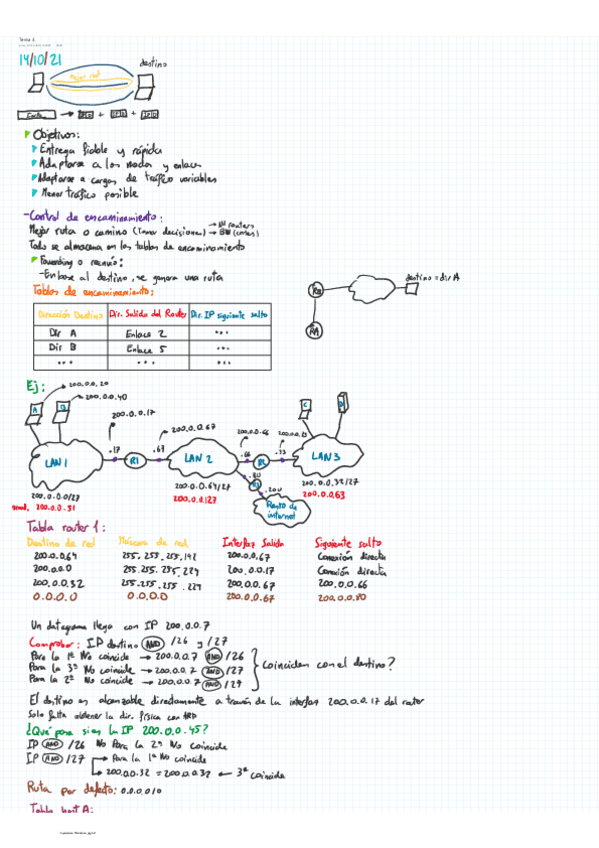 Tema 4
14/10/21
destino
Mejor red
Objetivos:
Entrega fiable y rápida
Adaptarse a los nodos y enlaces
Adaptarse a cargas de tráfico variables
Menor tráfico posible
-Control de encaminamiento:
Mejor ruta o camino (Tomar decisiones)
Todo se almacena en las tablas de encaminamiento
Forwarding o reenvío:
-En base al destino, se genera una ruta
Tablas de encaminamiento:
Dirección Destino Dir. Salida del Router Dir. IP siguiente salto
Dir A Enlace 2 ...
Dir B Enlace 5 ...
... ... ...
RB
destino = dir A
RA
Ej:
200.0.0.20
200.0.0.40
A
B
200.0.0.17
200.0.0.67
200.0.0.66
C
D
LAN 1
.17
R1
.67
LAN 2
.66
LAN 3
200.0.0.0/27
200.0.0.64/27
200.0.0.127
.80
200.0.0.32/27
200.0.0.63
200.0.0.31
Resto de internet
Tabla router 1:
Destino de red Máscara de red Interfaz Salida Siguiente salto
200.0.0.64 255.255.255.192 200.0.0.67 Conexión directa
200.0.0.0 255.255.255.224 200.0.0.17 Conexión directa
200.0.0.32 255.255.255.224 200.0.0.67 200.0.0.66
0.0.0.0 0.0.0.0 200.0.0.67 200.0.0.80
Un datagrama llega con IP 200.0.0.7
Comprobar: IP destino AND /26 y /27
Para la 1ª No coincide → 200.0.0.7 AND /26
Para la 3ª No coincide → 200.0.0.7 AND /27
Para la 2ª No coincide → 200.0.0.7 AND /27
Coinciden con el destino?
El destino es alcanzable directamente a través de la interfaz 200.0.0.17 del router
Solo falta obtener la dir. física con ARP
¿Qué pasa si es la IP 200.0.0.45?
IP AND /26 No Para la 2ª No coincide
IP AND /27 → Para la 1ª No coincide
→ 200.0.0.32 = 200.0.0.32 ← 3ª coincide
Ruta por defecto: 0.0.0.0/0
Tabla host A: